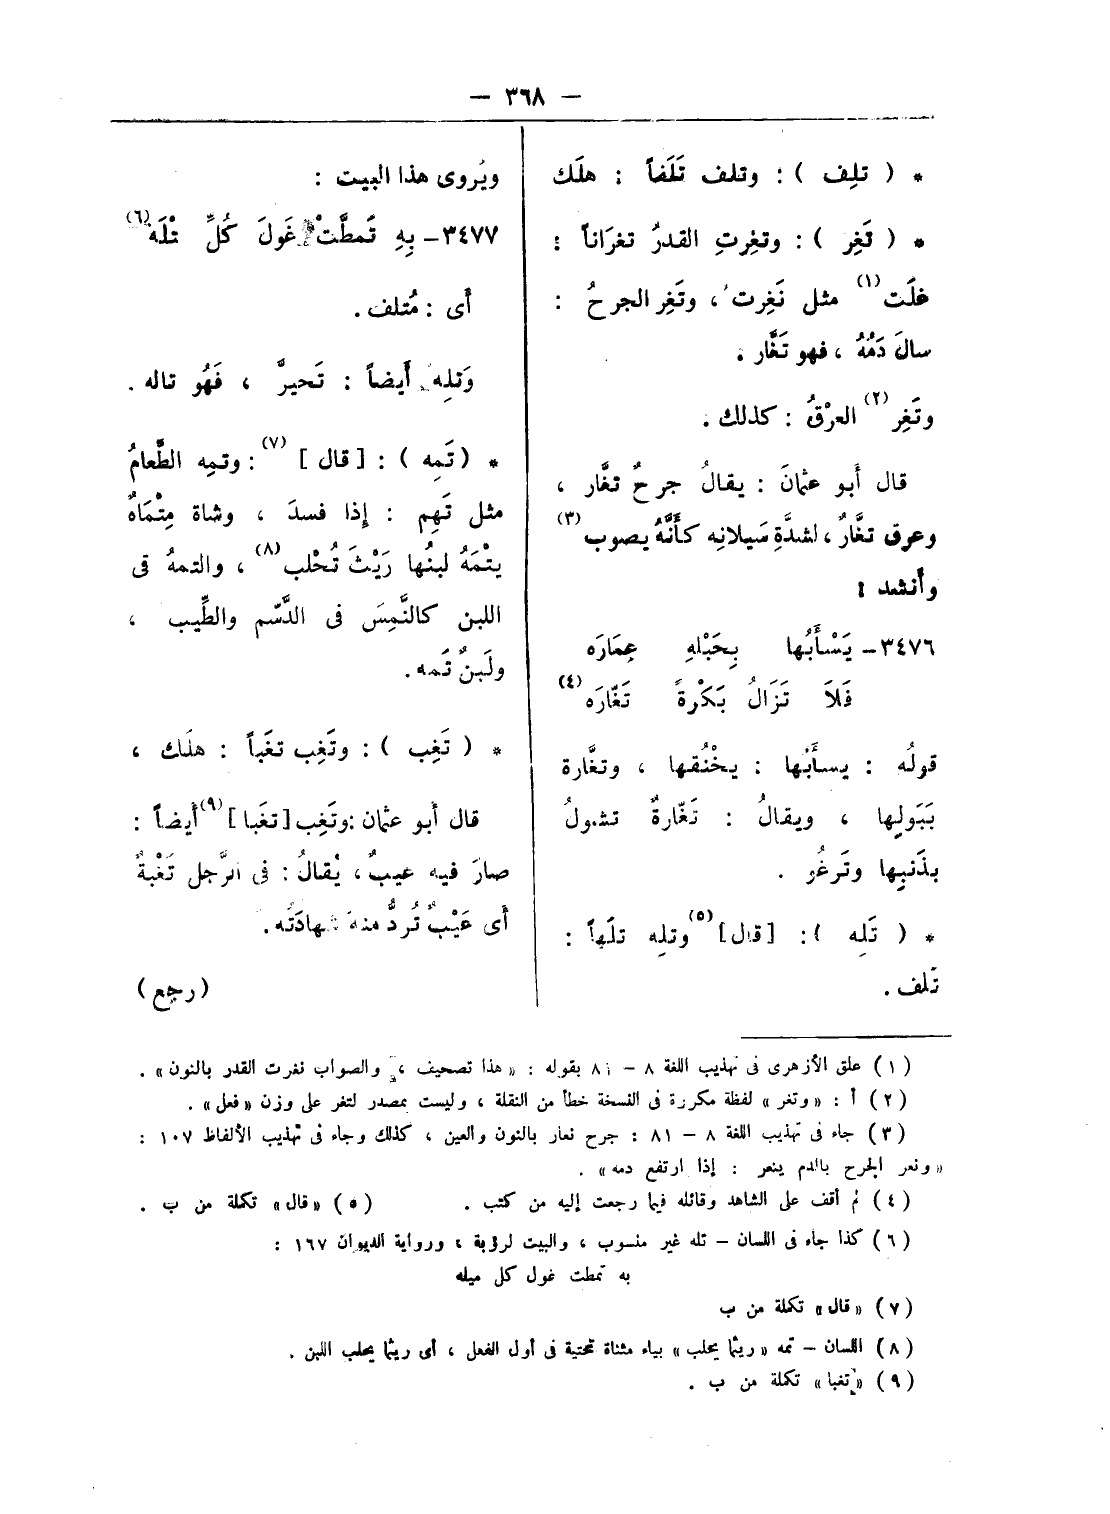 — ٣٦٨ —
* ( تلِف ) : وتلف تَلَفاً : هلَك
* ( تَغِر ) : وتغِرتِ القدرُ تغرَاناً :
غلَت(١) مثل نَغِرت ، وتَغِر الجرحُ :
سالَ دَمُهُ ، فهو تَغَّار .
وتَغِر(٢) العرْقُ : كذلك .
قال أبو عثمانَ : يقالُ جرحٌ تغَّار ،
وعرق تغَّارٌ ، لشدَّةِ سَيلانِه كأَنَّهُ يصوب(٣)
وأَنشد :
٣٤٧٦ – يَسْأَبُها بِحَبْلهِ عِمَارَه
فَلاَ تَزَالُ بَكْرةً تَغّارَه(٤)
قولُه : يسأَبُها : يخْنُقها ، وتغَّارة
بَبَولِها ، ويقالُ : تَغّارةٌ تشولُ
بذَنبِها وتَرغُو .
* ( تَلِه ) : [ قال ](٥) وتلِه تلَهاً :
تَلف .
ويُروى هذا البيت :
٣٤٧٧ – بِهِ تَمطَّتْ غَولَ كُلِّ تْلَه(٦)
أَى : مُتلف .
وَتلِه أَيضاً : تَحيرَّ ، فَهُو تاله .
* ( تَمِه ) : [ قال ](٧) : وتمِه الطَّعامُ
مثل تَهِم : إذا فسدَ ، وشاة مِتْمَاهٌ
يتْمَهُ لبنُها رَيْثَ تُحْلب(٨) ، والتمهُ فى
اللبن كالنَّمِسَ فى الدَّسّم والطِّيب ،
ولَبنٌ تَمه .
* ( تَغِب ) : وتَغِب تغَباً : هلَك ،
قال أبو عثمان : وتَغِب [ تغَبا ](٩) أَيضاً :
صارَ فيه عيبٌ ، يُقالُ : فى الرَّجل تَغْبةٌ
أى عَيْبٌ تُردُّ منهَ شهادَتُه .
( رجع )
(١) علق الأزهرى فى تهذيب اللغة ٨ – ٨١ بقوله : « هذا تصحيف ، والصواب نغرت القدر بالنون » .
(٢) أ : « وتغر » لفظة مكررة فى النسخة خطأ من النقلة ، وليست بمصدر لتغر على وزن « فعل » .
(٣) جاء فى تهذيب اللغة ٨ – ٨١ : جرح نعار بالنون والعين ، كذلك وجاء فى تهذيب الألفاظ ١٠٧ :
« ونعر الجرح بالدم ينعر : إذا ارتفع دمه » .
(٤) لم أقف على الشاهد وقائله فيما رجعت إليه من كتب . (٥) « قال » تكملة من ب .
(٦) كذا جاء فى اللسان – تله غير منسوب ، والبيت لرؤبة ، ورواية الديوان ١٦٧ :
به تمطت غول كل ميله
(٧) « قال » تكملة من ب
(٨) اللسان – تمه « ريثما يحلب » بياء مثناة تحتية فى أول الفعل ، أى ريثما يحلب اللبن .
(٩) « تغبا » تكملة من ب .